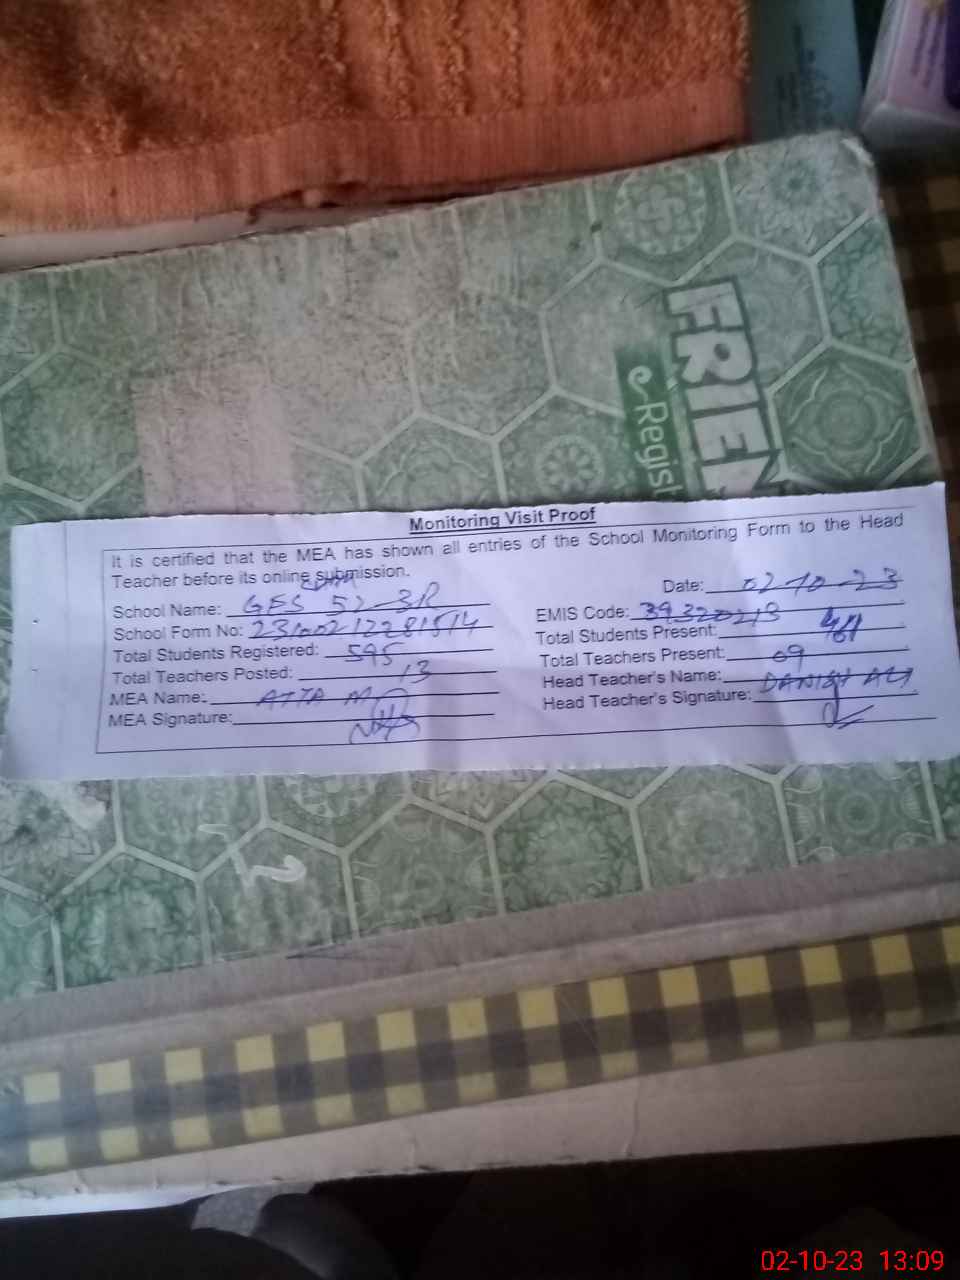 FRIEN
e Regist
Monitoring Visit Proof
It is certified that the MEA has shown all entries of the School Monitoring Form to the Head
Teacher before its online submission.
Date: 02-10-23
School Name: GES 52-3R
EMIS Code: 39320213
School Form No:
Total Students Present: 461
Total Students Registered: 595
Total Teachers Present: 09
Total Teachers Posted: 13
Head Teacher's Name: DANISH ALI
MEA Name: ATTA M
Head Teacher's Signature:
MEA Signature:
2
02-10-23 13:09